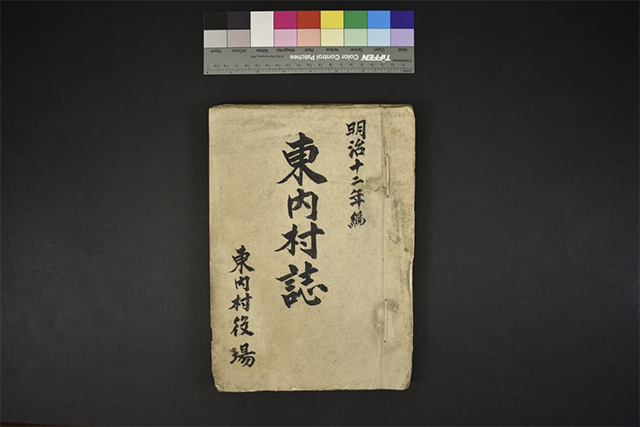 明治十二年編
東内村誌
東内村役場
TIFFEN Color Control Patches
Blue Cyan Green Yellow Red Magenta White 3/Color Black